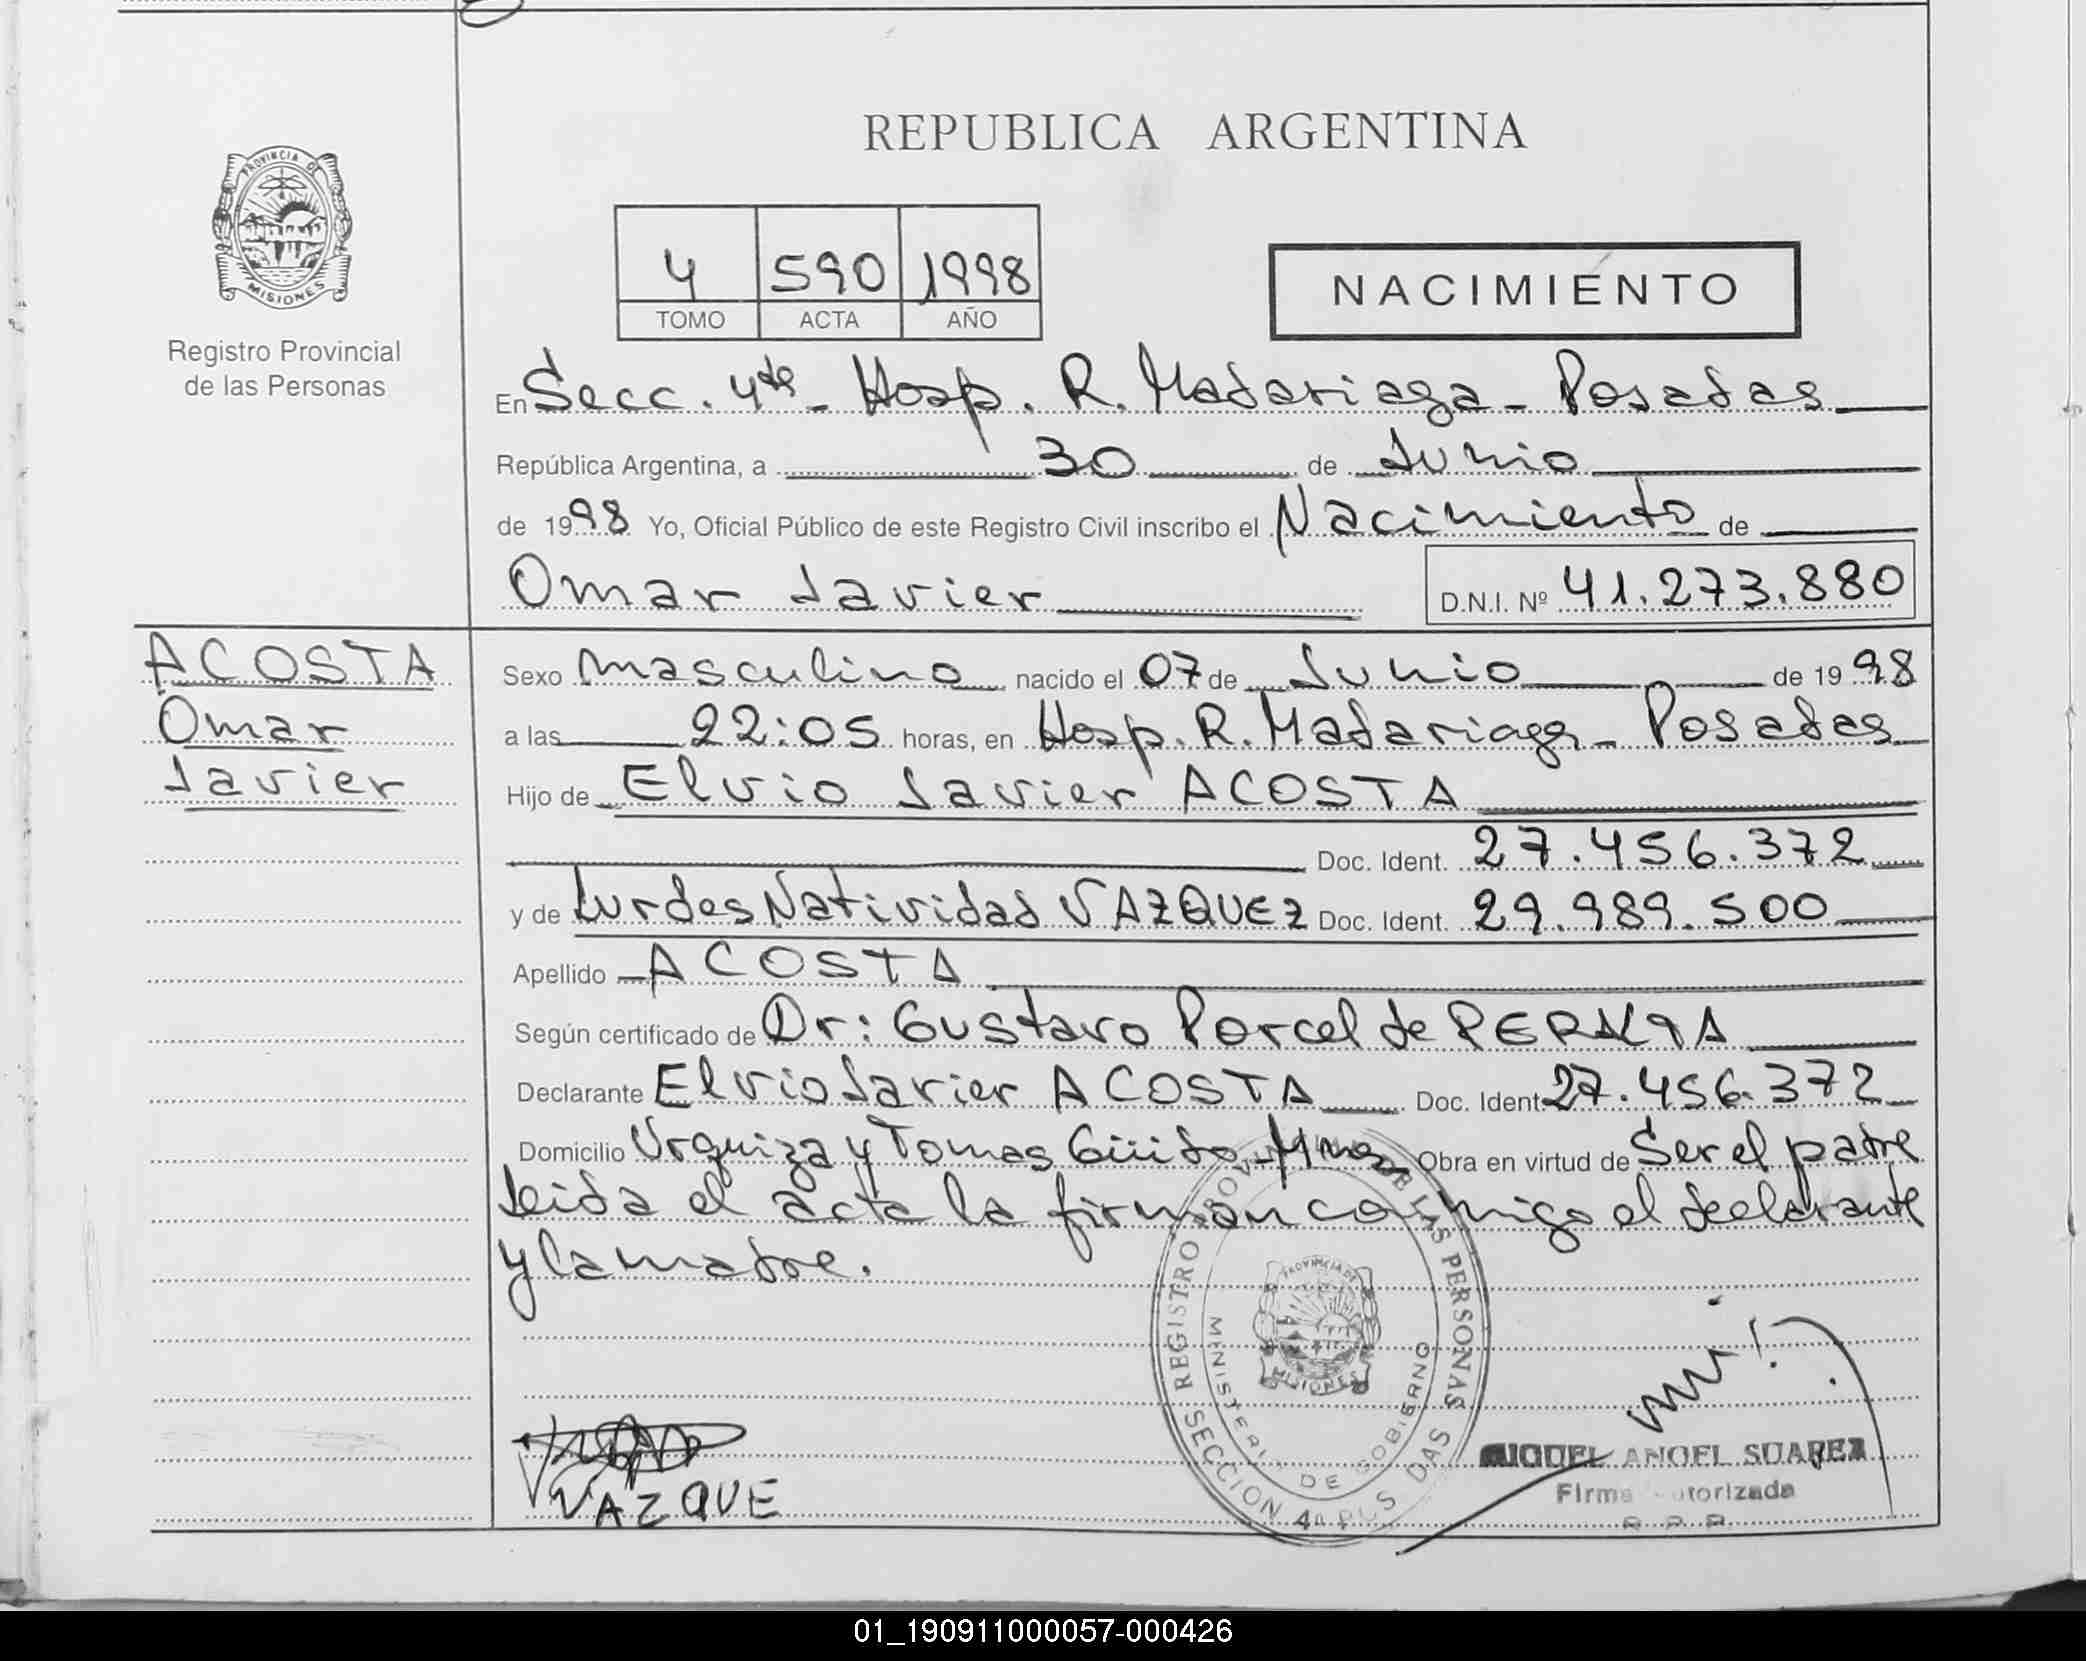 REPUBLICA ARGENTINA
PROVINCIA DE
MISIONES
Registro Provincial
de las Personas
4 590 1998
TOMO ACTA AÑO
NACIMIENTO
En Secc. 4ta - Hosp. R. Madariaga - Posadas
República Argentina, a 30 de Junio
de 1998 Yo, Oficial Público de este Registro Civil inscribo el Nacimiento de
Omar Javier D.N.I. Nº 41.273.880
ACOSTA
Omar
Javier
Sexo Masculino nacido el 07 de Junio de 1998
a las 22:05 horas, en Hosp. R. Madariaga - Posadas
Hijo de Elvio Javier ACOSTA
Doc. Ident. 27.456.372
y de Lurdes Natividad VAZQUEZ Doc. Ident. 29.989.500
Apellido ACOSTA
Según certificado de Dr: Gustavo Porcel de PERALTA
Declarante Elvio Javier ACOSTA Doc. Ident 27.456.372
Domicilio Urquiza y Tomas Güido - Mnes Obra en virtud de Ser el padre
leida el acta la firman conmigo el declarante
y la madre.
REGISTRO PROVINCIAL DE LAS PERSONAS
MINISTERIO DE GOBIERNO
PROVINCIA DE
MISIONES
SECCION 4a POSADAS
VAZQUE
MIGUEL ANGEL SUAREZ
Firma Autorizada
R. P. P.
01_190911000057-000426